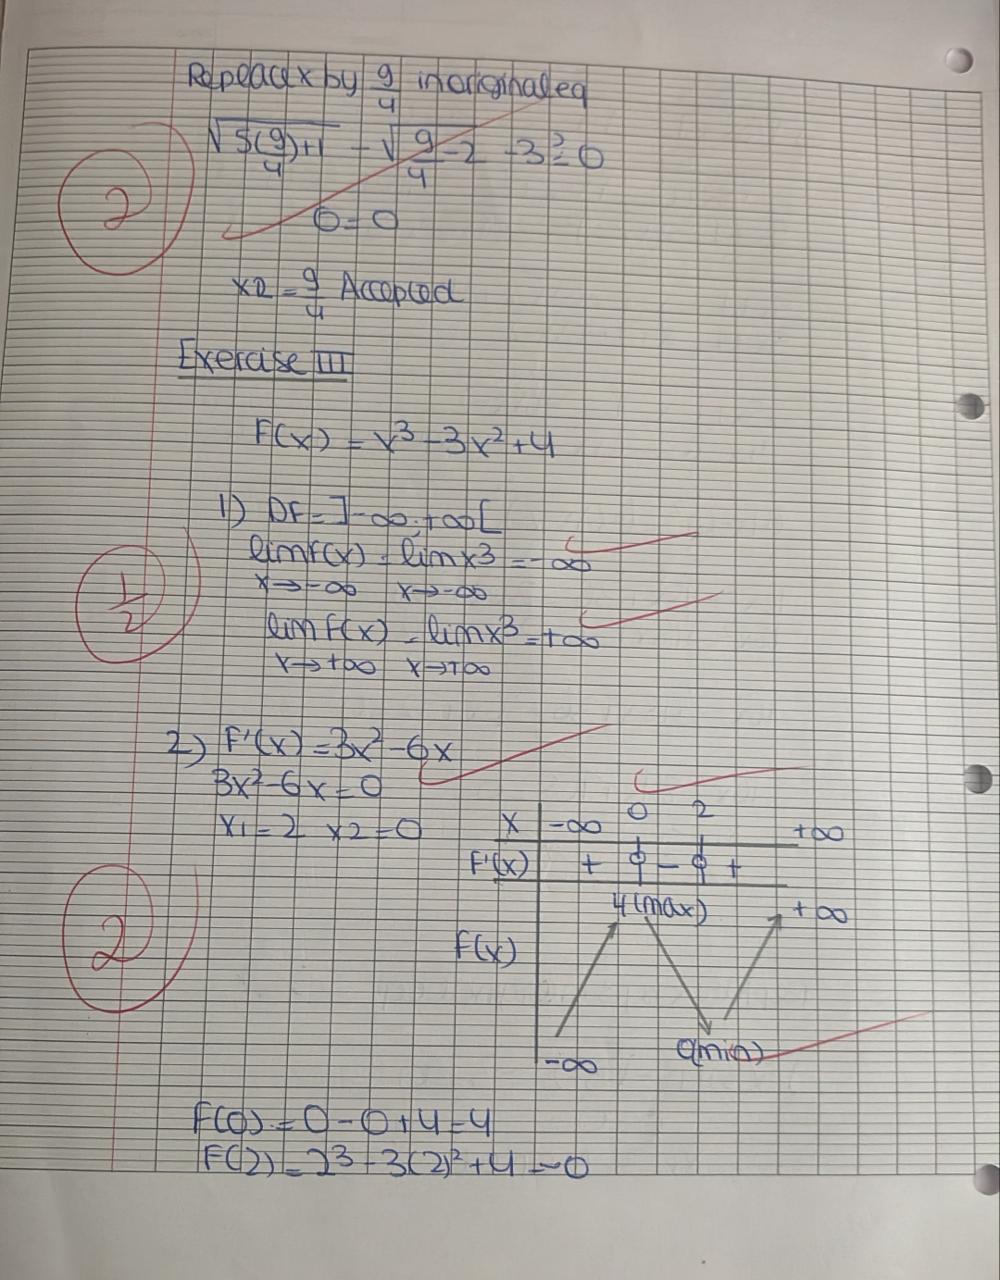 Replace x by 9/4 in original eq
√5(9/4)+1 - √9/4-2 -3 ?= 0
0=0
2
x2 = 9/4 Accepted
Exercise III
F(x) = x³-3x²+4
1) DF=]-∞;+∞[
lim F(x) = lim x³ = -∞
x→-∞ x→-∞
1/2
lim F(x) = lim x³ = +∞
x→+∞ x→+∞
2) F'(x) = 3x²-6x
3x²-6x=0
x1=2 x2=0
x -∞ 0 2 +∞
F'(x) + 0 - 0 +
4(max) +∞
F(x)
2
-∞ 0(min)
F(0) = 0-0+4=4
F(2) = 2³-3(2)²+4=0